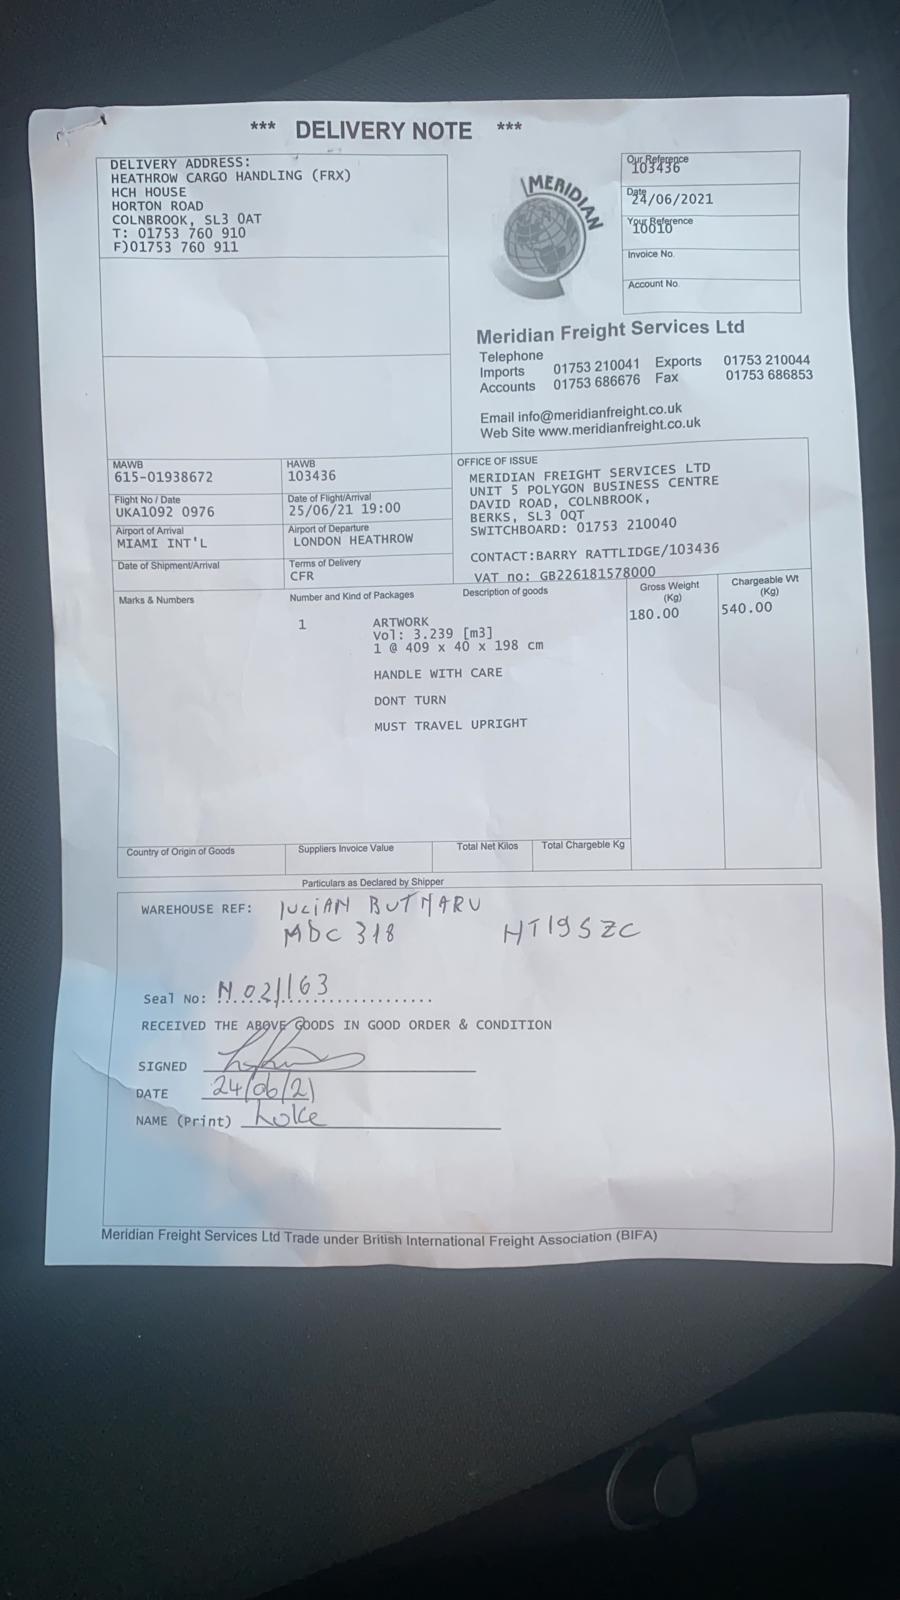 *** DELIVERY NOTE ***
DELIVERY ADDRESS:
HEATHROW CARGO HANDLING (FRX)
HCH HOUSE
HORTON ROAD
COLNBROOK, SL3 0AT
T: 01753 760 910
F)01753 760 911
MERIDIAN
Our Reference
103436
Date
24/06/2021
Your Reference
10010
Invoice No.
Account No.
Meridian Freight Services Ltd
Telephone
Imports 01753 210041 Exports 01753 210044
Accounts 01753 686676 Fax 01753 686853
Email info@meridianfreight.co.uk
Web Site www.meridianfreight.co.uk
MAWB
615-01938672
HAWB
103436
Flight No / Date
UKA1092 0976
Date of Flight/Arrival
25/06/21 19:00
Airport of Arrival
MIAMI INT'L
Airport of Departure
LONDON HEATHROW
Date of Shipment/Arrival
Terms of Delivery
CFR
OFFICE OF ISSUE
MERIDIAN FREIGHT SERVICES LTD
UNIT 5 POLYGON BUSINESS CENTRE
DAVID ROAD, COLNBROOK,
BERKS, SL3 0QT
SWITCHBOARD: 01753 210040
CONTACT:BARRY RATTLIDGE/103436
VAT no: GB226181578000
Marks & Numbers
Number and Kind of Packages
Description of goods
Gross Weight
(Kg)
Chargeable Wt
(Kg)
1
ARTWORK
180.00
540.00
Vol: 3.239 [m3]
1 @ 409 x 40 x 198 cm
HANDLE WITH CARE
DONT TURN
MUST TRAVEL UPRIGHT
Country of Origin of Goods
Suppliers Invoice Value
Total Net Kilos
Total Chargeble Kg
Particulars as Declared by Shipper
WAREHOUSE REF: IULIAN BUTNARU
MDC 318 HT19SZC
Seal No: N.021163
RECEIVED THE ABOVE GOODS IN GOOD ORDER & CONDITION
SIGNED
DATE 24/06/21
NAME (Print) Luke
Meridian Freight Services Ltd Trade under British International Freight Association (BIFA)